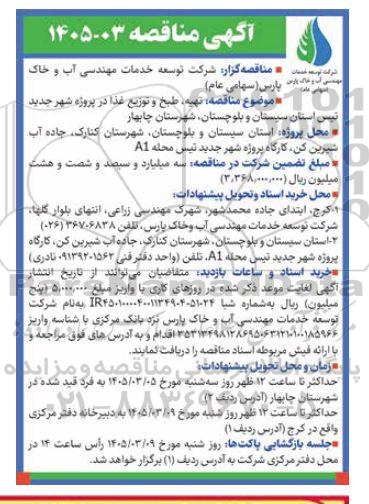 آگهی مناقصه ۰۳-۱۴۰۵
شرکت توسعه خدمات
مهندسی آب و خاک پارس
(سهامی عام)
مناقصه‌گزار: شرکت توسعه خدمات مهندسی آب و خاک
پارس (سهامی عام)
موضوع مناقصه: تهیه، طبخ و توزیع غذا در پروژه شهر جدید
تیس استان سیستان و بلوچستان، شهرستان چابهار
محل پروژه: استان سیستان و بلوچستان، شهرستان کنارک، جاده آب
شیرین کن، کارگاه پروژه شهر جدید تیس محله A1
مبلغ تضمین شرکت در مناقصه: سه میلیارد و سیصد و شصت و هشت
میلیون ریال (۳,۳۶۸,۰۰۰,۰۰۰)
محل خرید اسناد و تحویل پیشنهادات:
۱-کرج، ابتدای جاده محمدشهر، شهرک مهندسی زراعی، انتهای بلوار گلها،
شرکت توسعه خدمات مهندسی آب و خاک پارس، تلفن ۳۶۷۰۶۸۳۸ (۰۲۶)
۲-استان سیستان و بلوچستان، شهرستان کنارک، جاده آب شیرین کن، کارگاه
پروژه شهر جدید تیس محله A1، تلفن (واحد دفتر فنی ۰۹۱۳۹۲۰۱۵۶۲ نادری)
خرید اسناد و ساعات بازدید: متقاضیان می‌توانند از تاریخ انتشار
آگهی لغایت موعد ذکر شده در روزهای کاری با واریز مبلغ ۵,۰۰۰,۰۰۰ (پنج
میلیون) ریال به‌شماره شبا به‌نام شرکت
توسعه خدمات مهندسی آب و خاک پارس نزد بانک مرکزی با شناسه واریز
اقدام و به آدرس های فوق مراجعه و
با ارائه فیش مربوطه اسناد مناقصه را دریافت نمایند.
زمان و محل تحویل پیشنهادات:
حداکثر تا ساعت ۱۲ ظهر روز سه‌شنبه مورخ ۱۴۰۵/۰۳/۰۵ به فرد قید شده در
شهرستان چابهار (آدرس ردیف ۲)
حداکثر تا ساعت ۱۲ ظهر روز شنبه مورخ ۱۴۰۵/۰۳/۰۹ به دبیرخانه دفتر مرکزی
واقع در کرج (آدرس ردیف ۱)
جلسه بازگشایی پاکت‌ها: روز شنبه مورخ ۱۴۰۵/۰۳/۰۹ رأس ساعت ۱۴ در
محل دفتر مرکزی شرکت به آدرس ردیف (۱) برگزار خواهد شد.